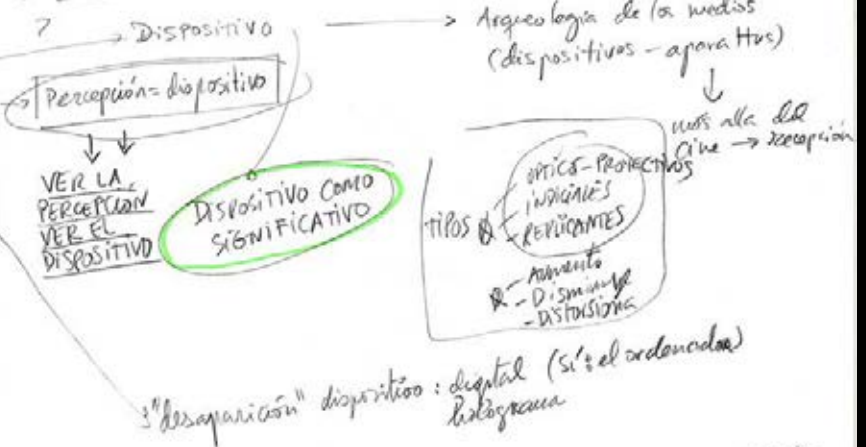 ?
DISPOSITIVO
Arqueología de los medios
(dispositivos - aparattus)
Percepción = dispositivo
más allá del
cine → recepción
VER LA
PERCEPCION
VER EL
DISPOSITIVO
DISPOSITIVO COMO
SIGNIFICATIVO
TIPOS
- OPTICO-PROYECTIVOS
- INDICIALES
- REPLICANTES
- Aumenta
- Disminuye
- Distorsiona
"desaparición" dispositivo: digital (sí: el ordenador)
holograma